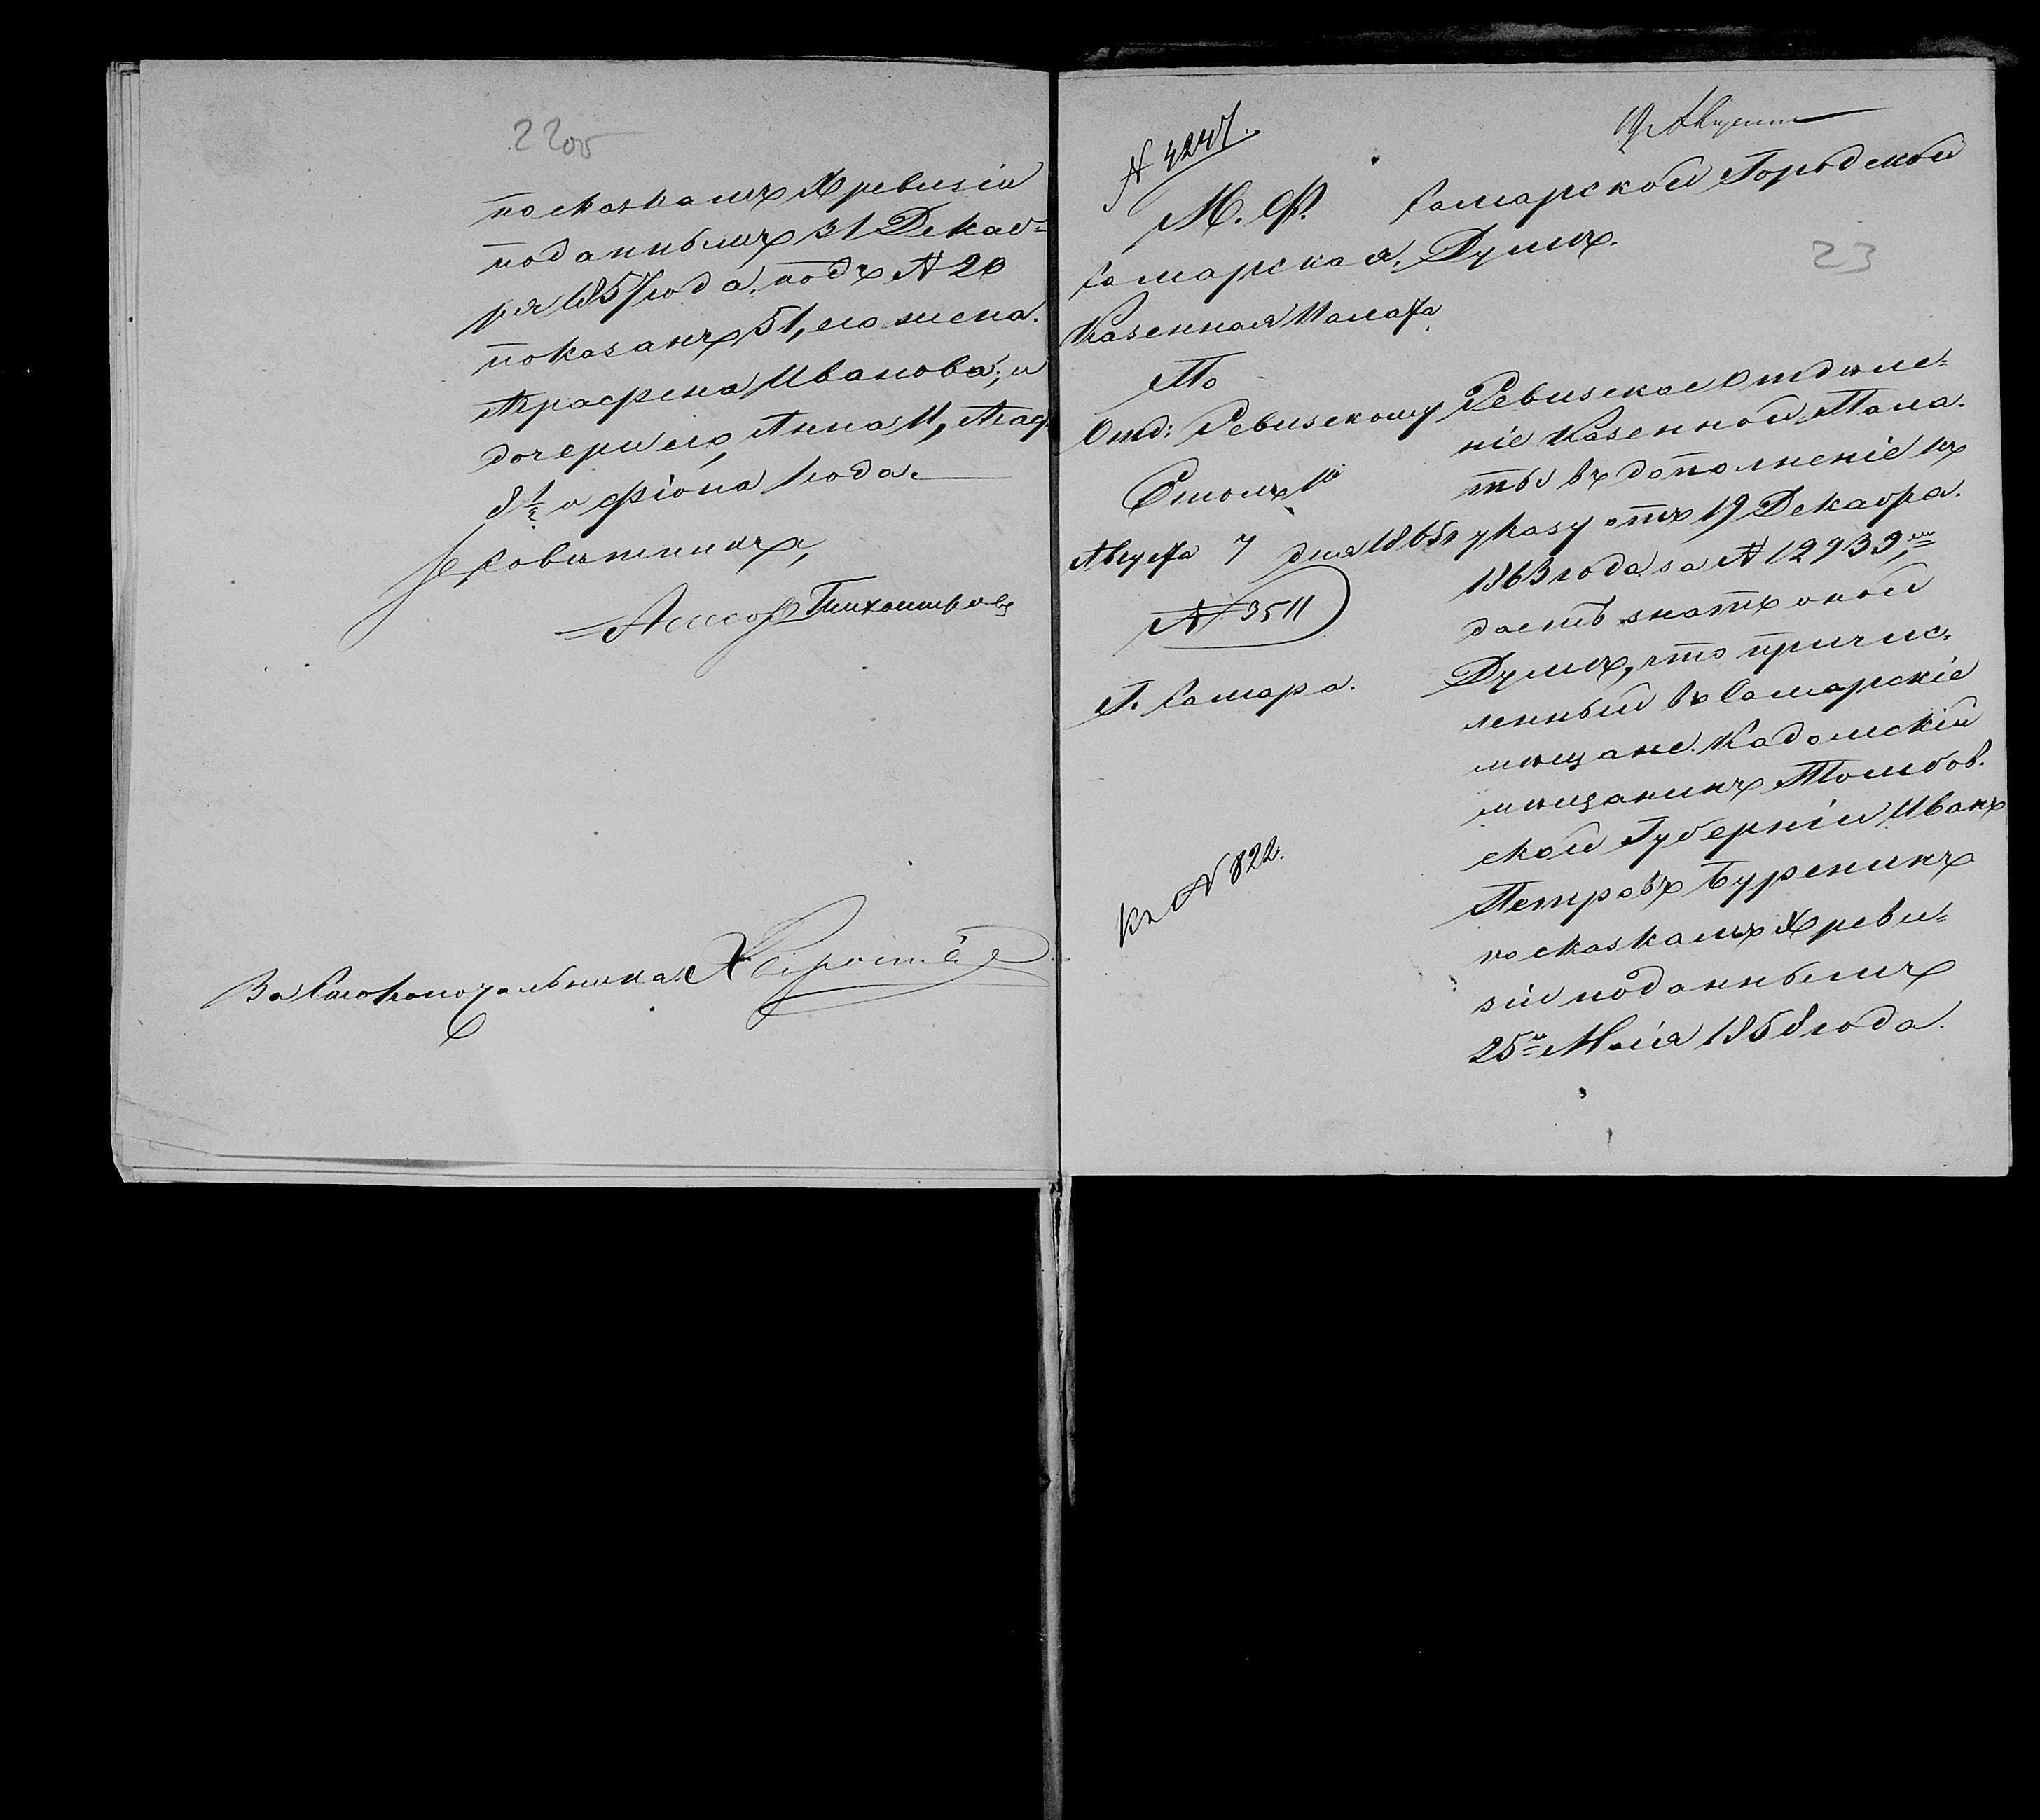 22об
по сказкамъ X ревизiи
поданнымъ 31 Декаб=
ря 1857 года подъ № 20
показанъ 51, его жена
Аграфена Иванова, и
дочери его, Анна 11, Агаф
8½ и Фiона 1 года.
Совѣтникъ,
Ассесоръ Тихомировъ
За Столоначальника
№ 4247.
Августа
М. Ф.
Самарская
Казенная Палата
По
Отд: Ревизскому
Столъ 1й
Августа 7 дня 1865 г
№ 3511
Г. Самара.
Къ № 822.
Самарской Городской
Думѣ.
23
Ревизское Отдѣле=
нiе Казенной Пала=
ты въ дополненiе къ
указу отъ 19 Декабря
1863 года за № 12939,
даетъ знать оной
Думѣ, что причис=
ленный въ Самарскiе
мѣщане Кадомскiй
мѣщанинъ Тамбов=
ской Губернiи Иванъ
Петровъ Буренинъ
по сказкамъ X реви=
зiи поданнымъ
25го Маiя 1858 года